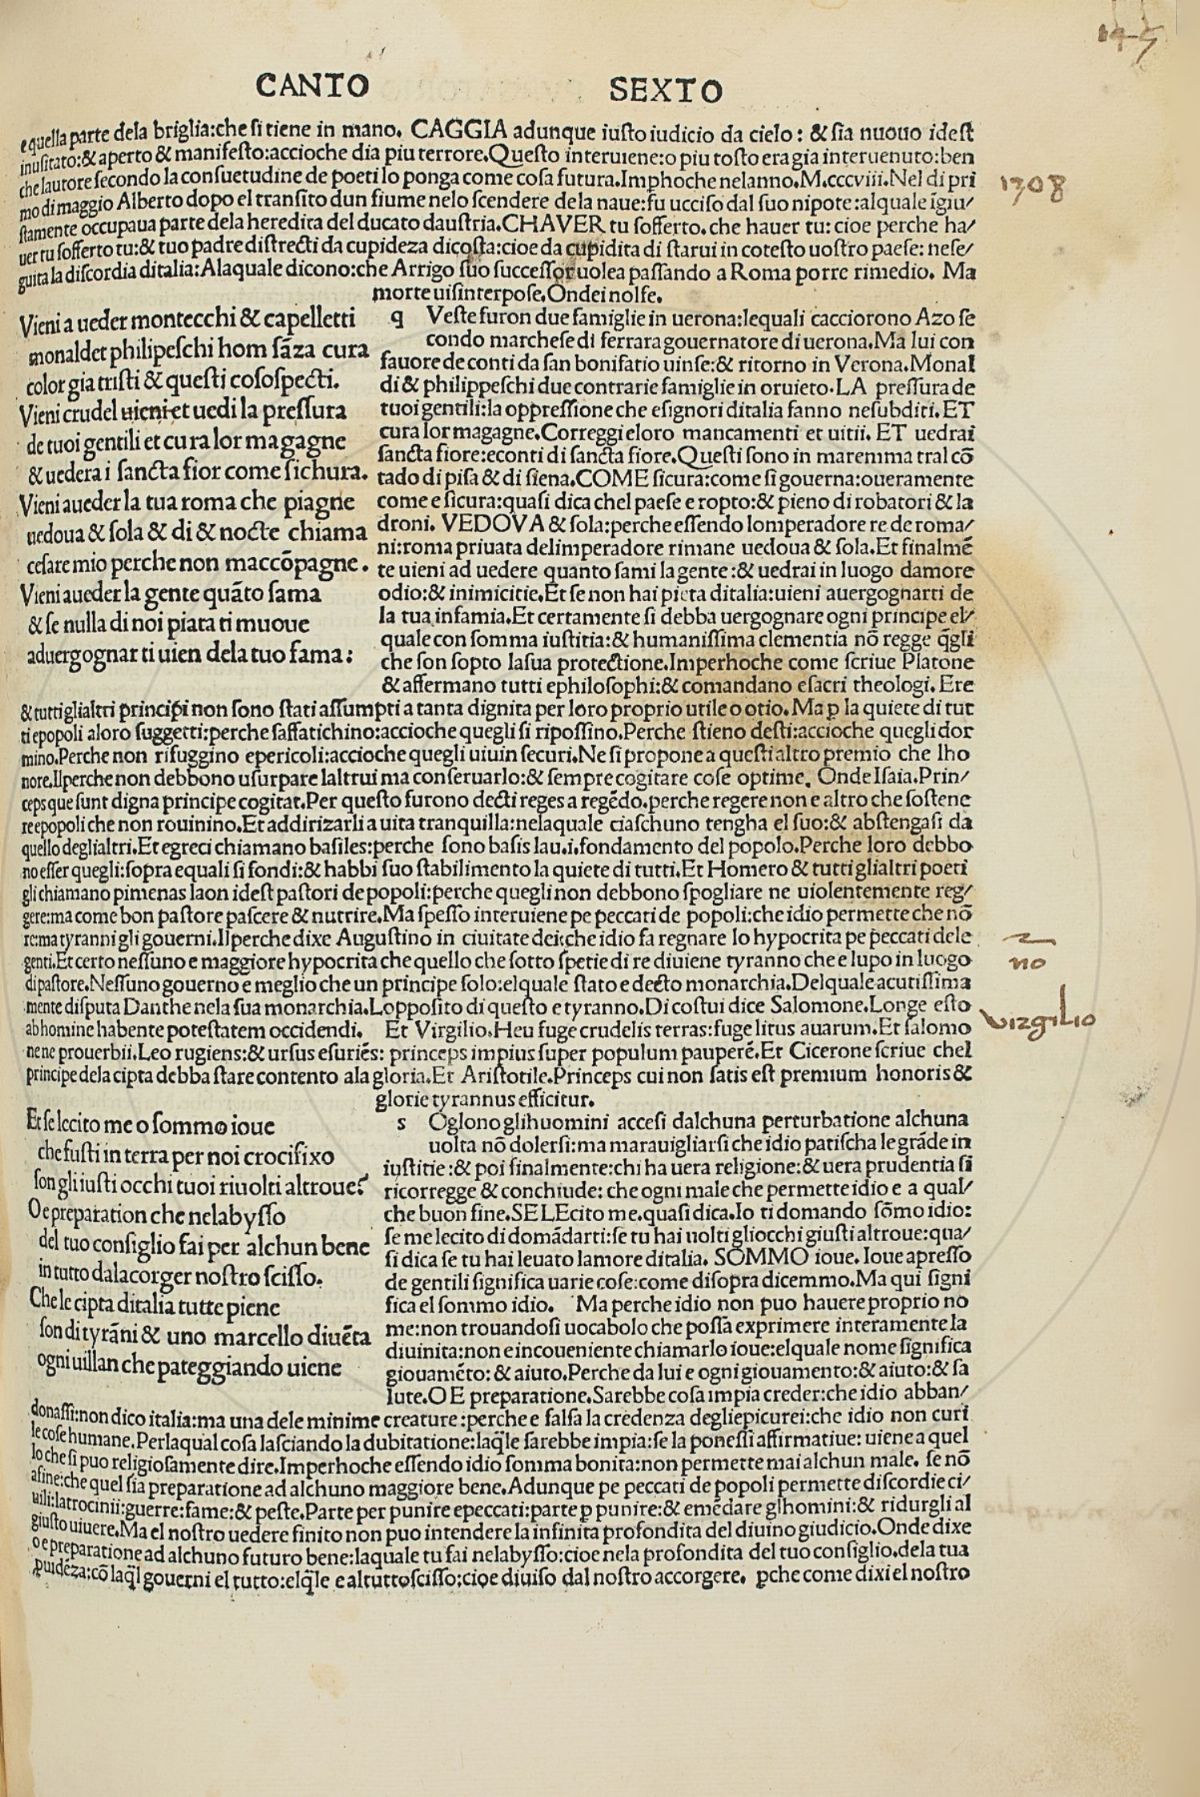 145
CANTO SEXTO
e quella parte dela briglia:che si tiene in mano. CAGGIA adunque iusto iudicio da cielo: & sia nuouo idest
inusitato:& aperto & manifesto:accioche dia piu terrore.Questo interuiene:o piu tosto era gia interuenuto:ben
che lautore secondo la consuetudine de poeti lo ponga come cosa futura.Imphoche nelanno.M.cccviii.Nel di pri
1308
mo di maggio Alberto dopo el transito dun fiume nelo scendere dela naue:fu ucciso dal suo nipote:alquale igiu/
stamente occupaua parte dela heredita del ducato daustria.CHAVER tu sofferto.che hauer tu: cioe perche ha/
uer tu sofferto tu:& tuo padre distrecti da cupideza dicosta:cioe da cupidita di starui in cotesto uostro paese: nese/
guita la discordia ditalia:Alaquale dicono:che Arrigo suo successor uolea passando a Roma porre rimedio. Ma
morte uisinterpose.Ondei nolfe.
Vieni a ueder montecchi & capelletti
monaldet philipeschi hom sāza cura
color gia tristi & questi cososspecti.
Vieni crudel uieni et uedi la pressura
de tuoi gentili et cura lor magagne
& uedera i sancta fior come sichura.
Vieni aueder la tua roma che piagne
uedoua & sola & di & nocte chiama
cesare mio perche non maccōpagne.
Vieni aueder la gente quāto sama
& se nulla di noi piata ti muoue
aduergognar ti uien dela tuo fama:
q Veste furon due famiglie in uerona:lequali cacciorono Azo se
condo marchese di ferrara gouernatore di uerona.Ma lui con
fauore de conti da san bonifatio uinse:& ritorno in Verona.Monal
di & philippeschi due contrarie famiglie in oruieto.LA pressura de
tuoi gentili:la oppressione che esignori ditalia fanno nesubditi. ET
cura lor magagne.Correggi eloro mancamenti et uitii. ET uedrai
sancta fiore:econti di sancta fiore.Questi sono in maremma tral cō
tado di pisa & di siena.COME sicura:come si gouerna:oueramente
come e sicura:quasi dica chel paese e ropto:& pieno di robatori & la
droni. VEDOVA & sola:perche essendo lomperadore re de roma/
ni:roma priuata delimperadore rimane uedoua & sola.Et finalmē
te uieni ad uedere quanto sami la gente:& uedrai in luogo damore
odio:& inimicitie.Et se non hai pieta ditalia:uieni auergognarti de
la tua infamia.Et certamente si debba uergognare ogni principe el/
quale con somma iustitia:& humanissima clementia nō regge q̄gli
che son sopto lasua protectione.Imperhoche come scriue Platone
& affermano tutti ephilosophi:& comandano esacri theologi. Ere
& tutti glialtri principi non sono stati assumpti a tanta dignita per loro proprio utile o otio. Ma p la quiete di tut
ti epopoli aloro suggetti:perche saffatichino:accioche quegli si ripossino.Perche stieno desti:accioche quegli dor
mino.Perche non rifuggino epericoli:accioche quegli uiuin securi.Ne si propone a questi altro premio che lho
nore.Ilperche non debbono usurpare laltrui ma conseruarlo:& sempre cogitare cose optime. Onde Isaia.Prin/
ceps que sunt digna principe cogitat.Per questo furono decti reges a regēdo.perche regere non e altro che sostene
re epopoli che non rouinino.Et addirizarli a uita tranquilla:nelaquale ciaschuno tengha el suo:& abstengasi da
quello deglialtri.Et egreci chiamano basiles:perche sono basis lau.i.fondamento del popolo.Perche loro debbo
no esser quegli:sopra equali si fondi:& habbi suo stabilimento la quiete di tutti.Et Homero & tutti glialtri poeti
gli chiamano pimenas laon idest pastori de popoli:perche quegli non debbono spogliare ne uiolentemente reg/
gere:ma come bon pastore pascere & nutrire.Ma spesso interuiene pe peccati de popoli:che idio permette che nō
re:ma tyranni gli gouerni.Ilperche dixe Augustino in ciuitate dei:che idio fa regnare lo hypocrita pe peccati dele
genti.Et certo nessuno e maggiore hypocrita che quello che sotto spetie di re diuiene tyranno che e lupo in luogo
no
di pastore.Nessuno gouerno e meglio che un principe solo:elquale stato e decto monarchia.Delquale acutissima
mente disputa Danthe nela sua monarchia.Lopposito di questo e tyranno.Di costui dice Salomone.Longe esto
virgilio
ab homine habente potestatem occidendi. Et Virgilio.Heu fuge crudelis terras:fuge litus auarum.Et salomo
nene prouerbii.Leo rugiens:& ursus esuriēs: princeps impius super populum pauperē.Et Cicerone scriue chel
principe dela cipta debba stare contento ala gloria.Et Aristotile.Princeps cui non satis est premium honoris &
glorie tyrannus efficitur.
Et se lecito me o sommo ioue
che fusti in terra per noi crocifixo
son gli iusti occhi tuoi riuolti altroue?
O e preparation che nelabysso
del tuo consiglio fai per alchun bene
in tutto dalacorger nostro scisso.
Che le cipta ditalia tutte piene
son di tyrāni & uno marcello diuēta
ogni uillan che pateggiando uiene
s Oglono glihuomini accesi dalchuna perturbatione alchuna
uolta nō dolersi:ma marauigliarsi che idio patischa le grāde in
iustitie:& poi finalmente:chi ha uera religione:& uera prudentia si
ricorregge & conchiude: che ogni male che permette idio e a qual/
che buon fine.SE LEcito me.quasi dica.Io ti domando sōmo idio:
se me lecito di domādarti:se tu hai uolti gliocchi giusti altroue:qua/
si dica se tu hai leuato lamore ditalia. SOMMO ioue. Ioue apresso
de gentili significa uarie cose:come disopra dicemmo.Ma qui signi
fica el sommo idio. Ma perche idio non puo hauere proprio no
me:non trouandosi uocabolo che possa exprimere interamente la
diuinita:non e incoueniente chiamarlo ioue:elquale nome significa
giouamēto:& aiuto.Perche da lui e ogni giouamento:& aiuto:& sa
lute.O E preparatione.Sarebbe cosa impia creder:che idio abban/
donassi:non dico italia:ma una dele minime creature:perche e falsa la credenza degliepicurei:che idio non curi
le cose humane.Perlaqual cosa lasciando la dubitatione:laq̄le sarebbe impia:se la ponessi affirmatiue: uiene a quel
lo che si puo religiosamente dire.Imperhoche essendo idio somma bonita:non permette mai alchun male. se nō
a fine:che quel sia preparatione ad alchuno maggiore bene.Adunque pe peccati de popoli permette discordie ci/
uili:latrocinii:guerre:fame:& peste.Parte per punire epeccati:parte p punire:& emēdare glhomini:& ridurgli al
giusto uiuere.Ma el nostro uedere finito non puo intendere la infinita profondita del diuino giudicio.Onde dixe
o e preparatione ad alchuno futuro bene:laquale tu fai nelabysso:cioe nela profondita del tuo consiglio.dela tua
puidēza:cō laq̄l gouerni el tutto:elq̄le e altuttoscisso:cioe diuiso dal nostro accorgere. pche come dixi el nostro